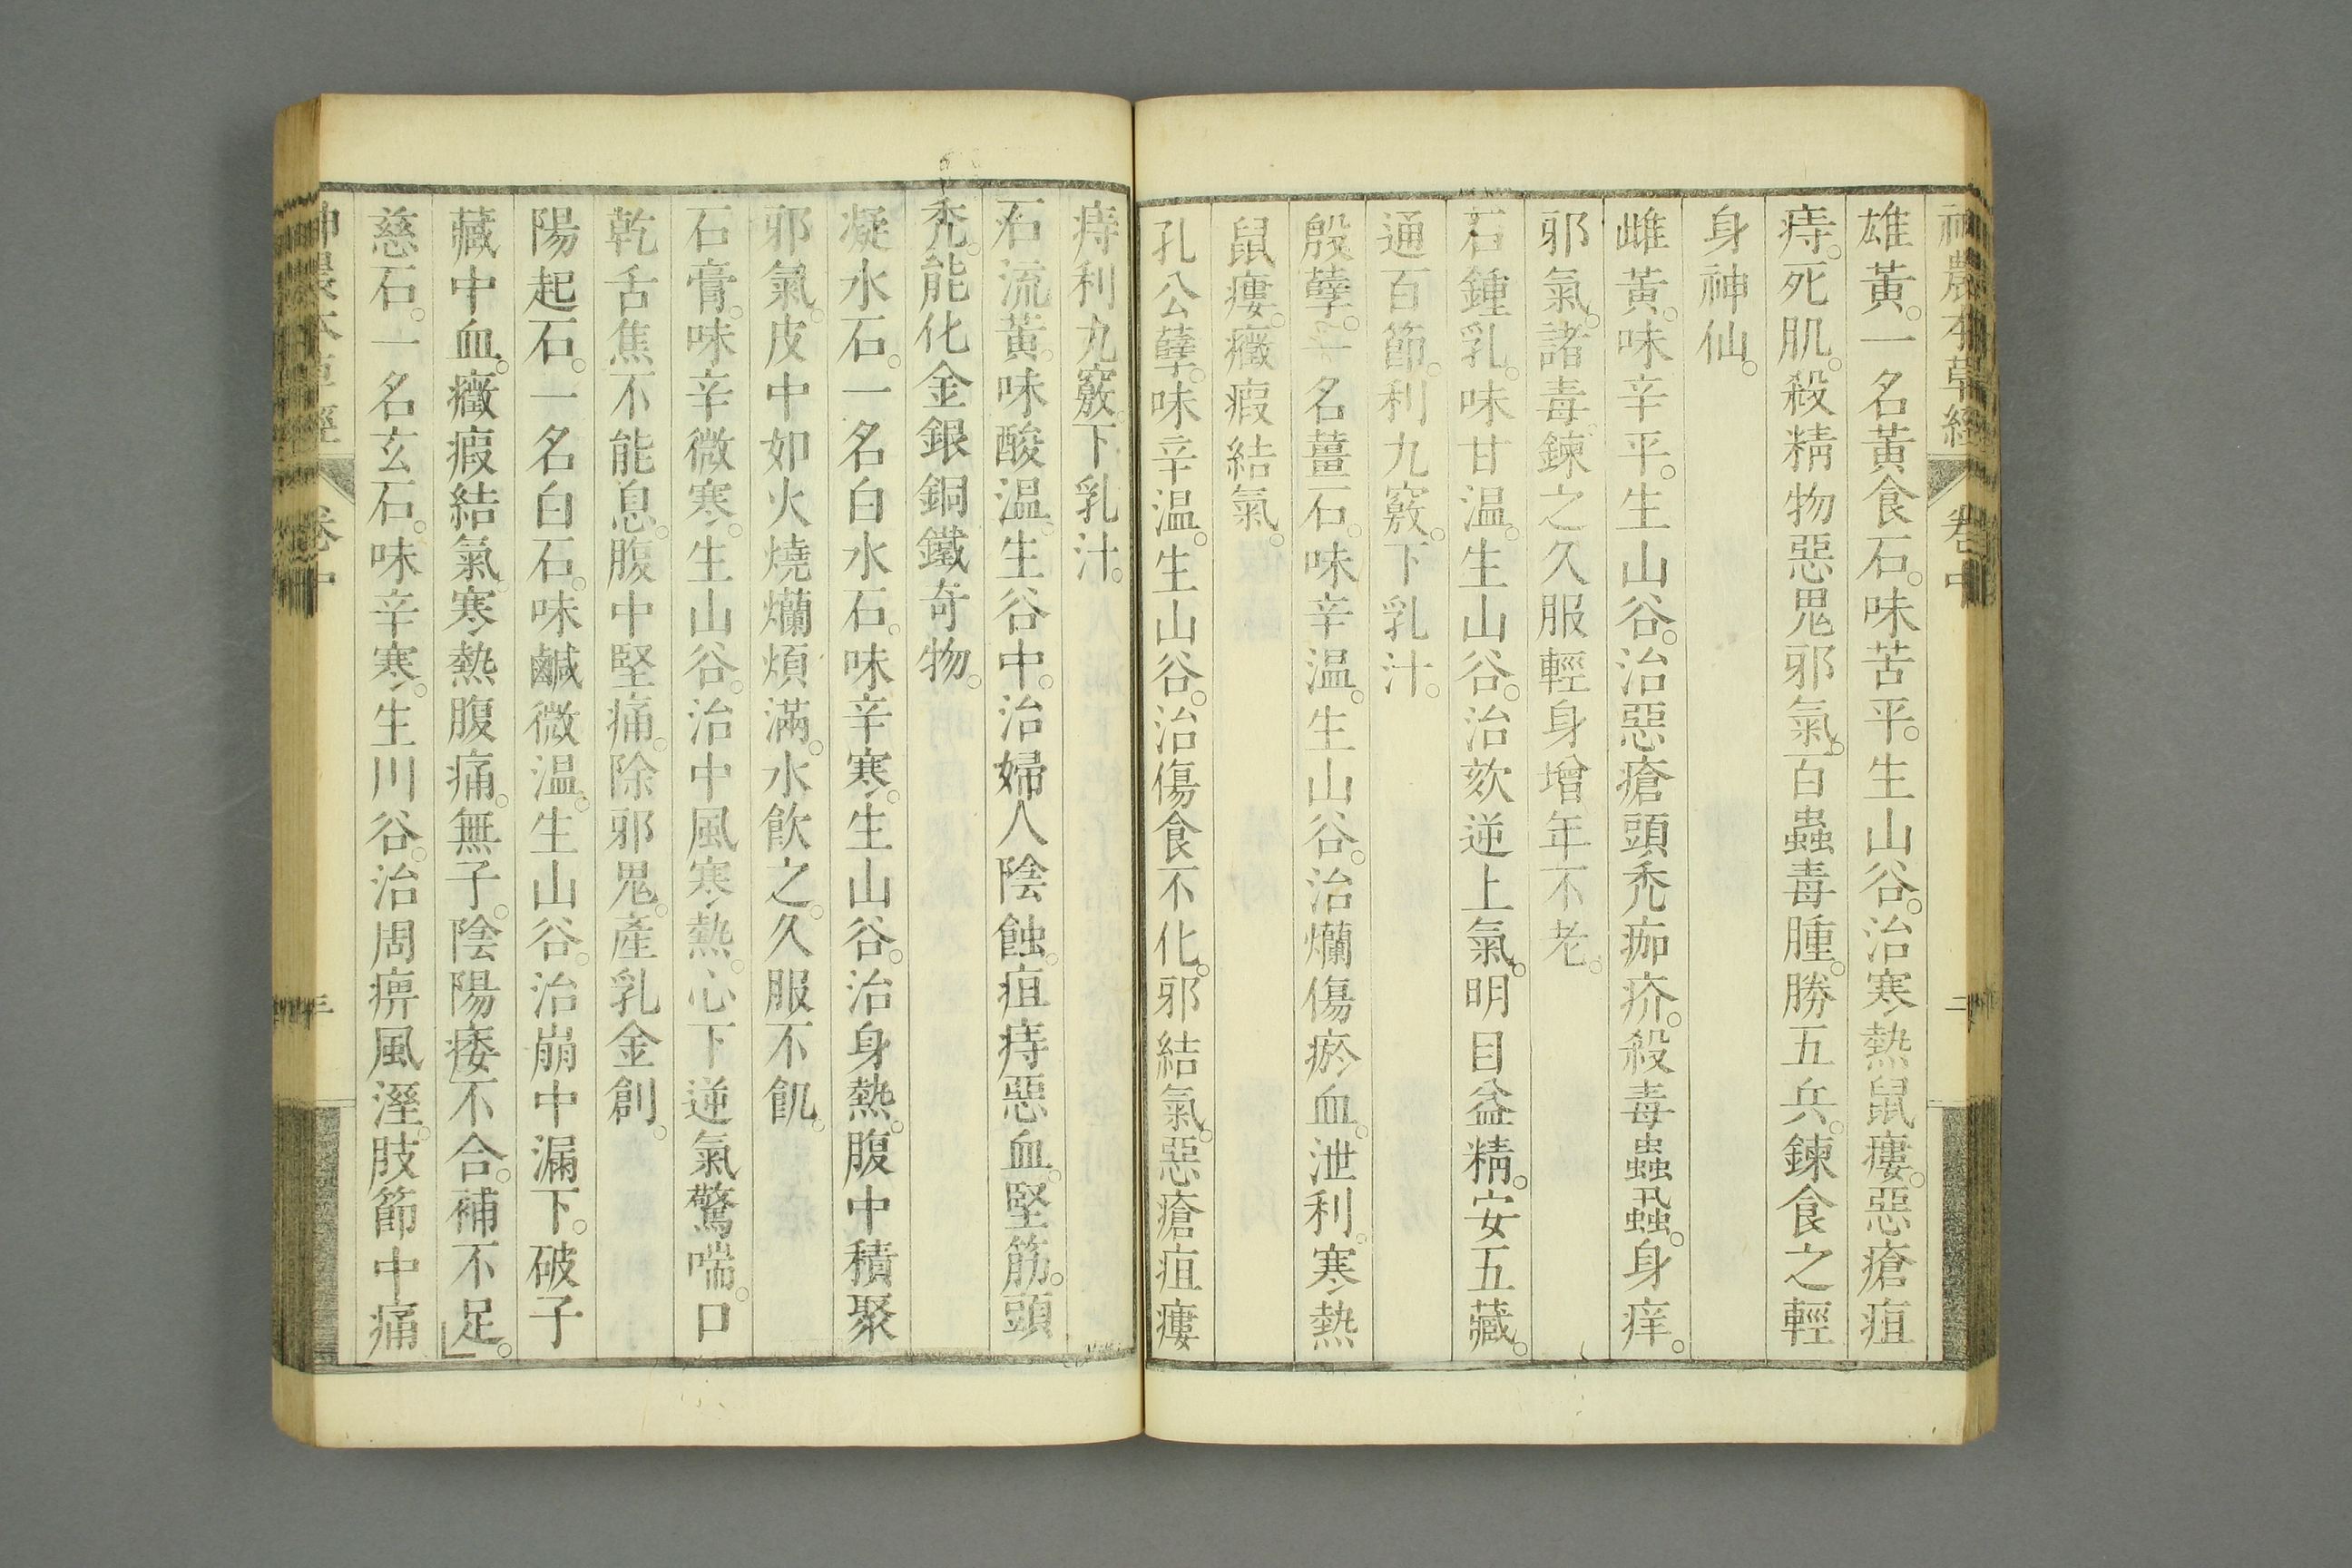 神農本草經 卷中 二
雄黃。一名黃食石。味苦平。生山谷。治寒熱鼠瘻。惡瘡疽
痔。死肌。殺精物惡鬼邪氣。百蟲毒腫。勝五兵。鍊食之輕
身神仙。
雌黃。味辛平。生山谷。治惡瘡頭禿痂疥。殺毒蟲蝨。身痒。
邪氣。諸毒。鍊之久服輕身增年不老。
石鍾乳。味甘温。生山谷。治欬逆上氣。明目益精。安五藏。
通百節。利九竅。下乳汁。
殷孽。一名薑石。味辛温。生山谷。治爛傷瘀血。泄利。寒熱
鼠瘻。癥瘕結氣。
孔公孽。味辛温。生山谷。治傷食不化。邪結氣。惡瘡疽瘻
痔利九竅。下乳汁。
石流黃。味酸温。生谷中。治婦人陰蝕。疽痔惡血。堅筋。頭
禿。能化金銀銅鐵奇物。
凝水石。一名白水石。味辛寒。生山谷。治身熱。腹中積聚
邪氣。皮中如火燒爛煩滿。水飲之。久服不飢。
石膏。味辛微寒。生山谷。治中風寒熱。心下逆氣驚喘。口
乾舌焦不能息。腹中堅痛。除邪鬼。產乳金創。
陽起石。一名白石。味鹹微温。生山谷。治崩中漏下。破子
藏中血。癥瘕結氣。寒熱腹痛。無子。陰陽痿不合。補不足。
慈石。一名玄石。味辛寒。生川谷。治周痹風溼。肢節中痛
神農本草經 卷中 三